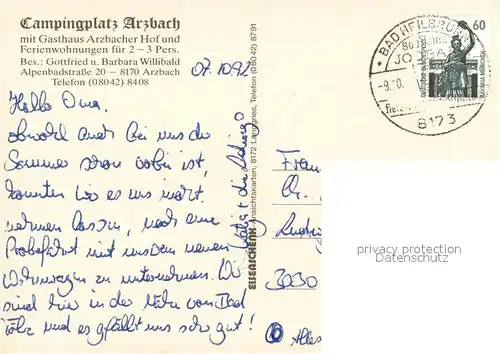 Campingplatz Arzbach
mit Gasthaus Arzbacher Hof und
Ferienwohnungen für 2–3 Pers.
Bes.: Gottfried u. Barbara Willibald
Alpenbadstraße 20 – 8170 Arzbach
Telefon (08042) 8408
07.10.92
Hallo Oma,
obwohl auch bei uns der
Sommer schon vorbei ist,
konnten wir es uns nicht
nehmen lassen, noch eine
Probefahrt mit unsrem neuen
Wohnwagen zu unternehmen. Wir
sind hier in der Nähe von Bad
Tölz und es gefällt uns sehr gut!
EISENSCHENK-Ansichtskarten, 8172 Lenggries, Telefon (08042) 8791
60
BAD HEILBRUNN
-9.10.
8173
Frau
3030
privacy protection
DARMSTADT